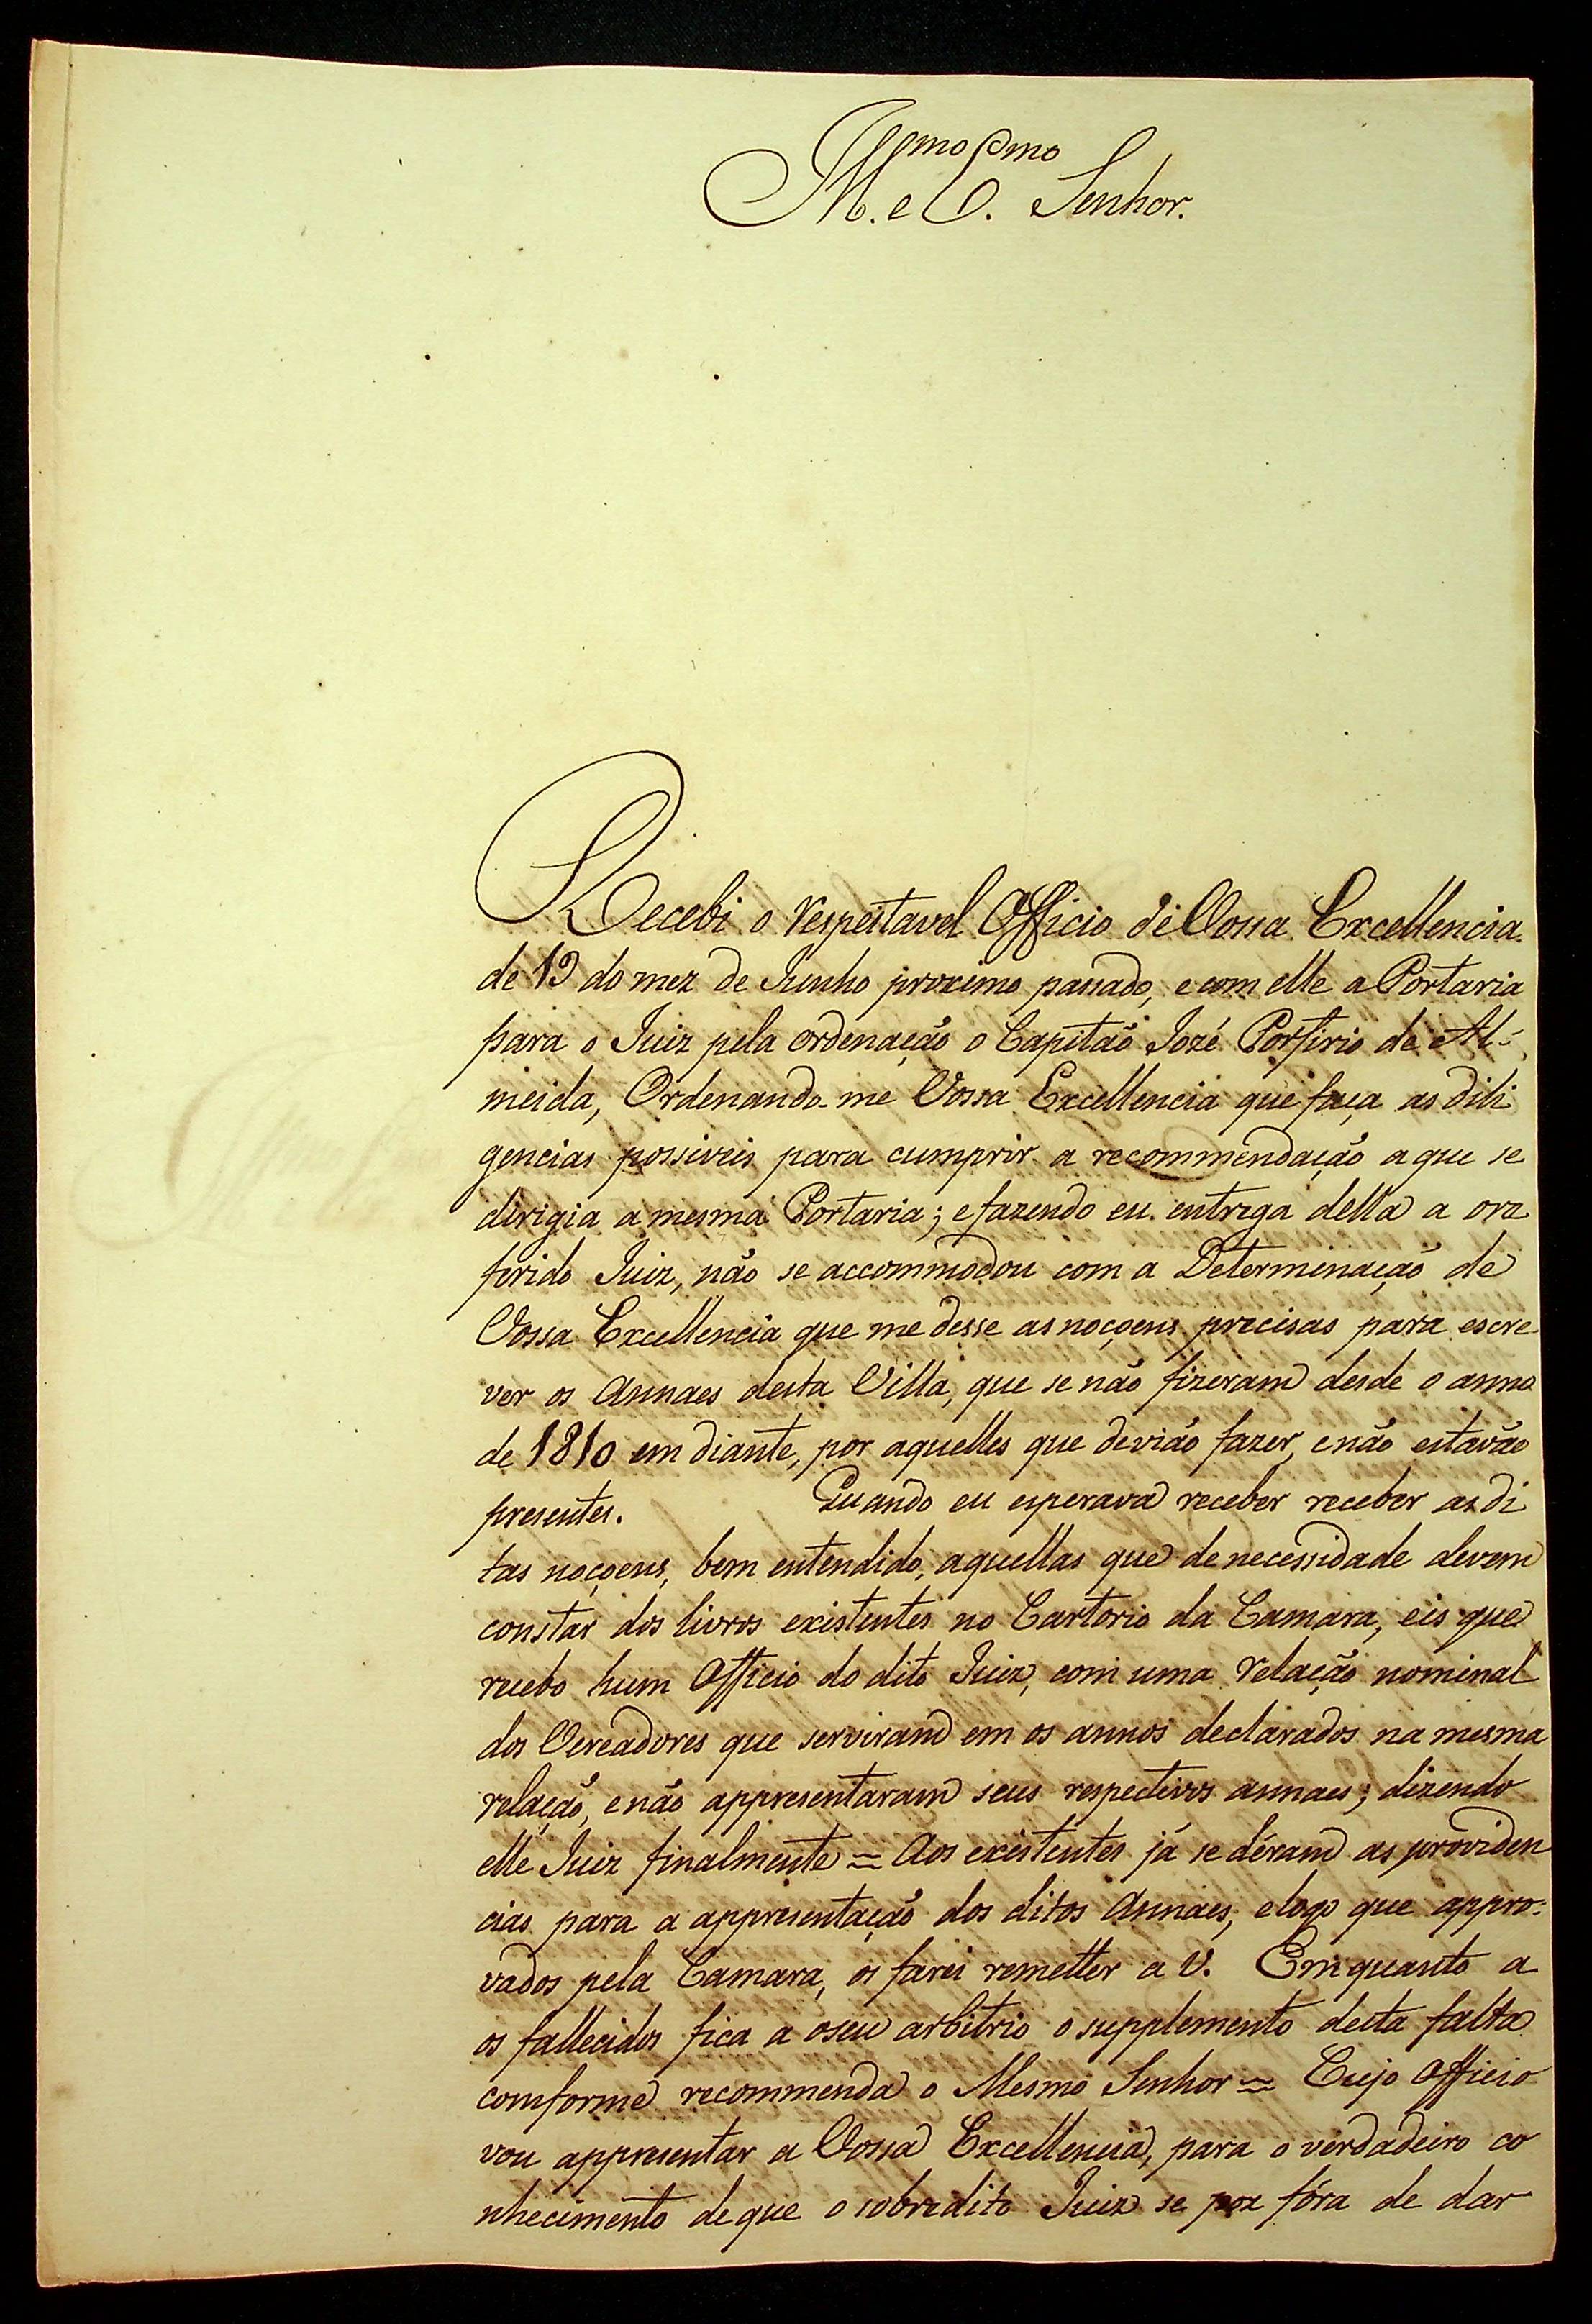 Illmo. e Exmo. Senhor.
Recebi o respeitavel Officio de Vossa Excellencia
de 19 do mez de Junho proximo passado, e com elle a Portaria
para o Juiz pela ordenação o Capitão Jozé Porfirio de Al-
meida, Ordenando-me Vossa Excellencia que faça as dili
gencias possiveis para cumprir a recommendação a que se
dirigia a mesma Portaria; e fazendo eu entrega della a ora
ferido Juiz, não se accommodou com a Determinação de
Vossa Excellencia que me desse as noçoens precisas para escre
ver os Annaes desta Villa, que se não fizeram desde o anno
de 1810 em diante, por aquelles que devião fazer, e não estavão
presentes. Quando eu esperava receber receber as di
tas noçoens, bem entendido, aquellas que de necessidade devem
constar dos livros existentes no Cartorio da Camara, eis que
recebo hum Officio do dito Juiz, com uma relação nominal
dos Vereadores que serviram em os annos declarados na mesma
relação, e não appresentaram seus respectivos annaes; dizendo
elle Juiz finalmente = Aos existentes já se déram as providen
cias para a appresentação dos ditos Annaes, e logo que appro-
vados pela Camara, os farei remetter a V. Emquanto a
os fallecidos fica a o seu arbitrio o supplemento desta falta
comforme recommenda o Mesmo Senhor = Cujo Officio
vou appresentar a Vossa Excellencia, para o verdadeiro co
nhecimento de que o sobredito Juiz se poz fóra de dar